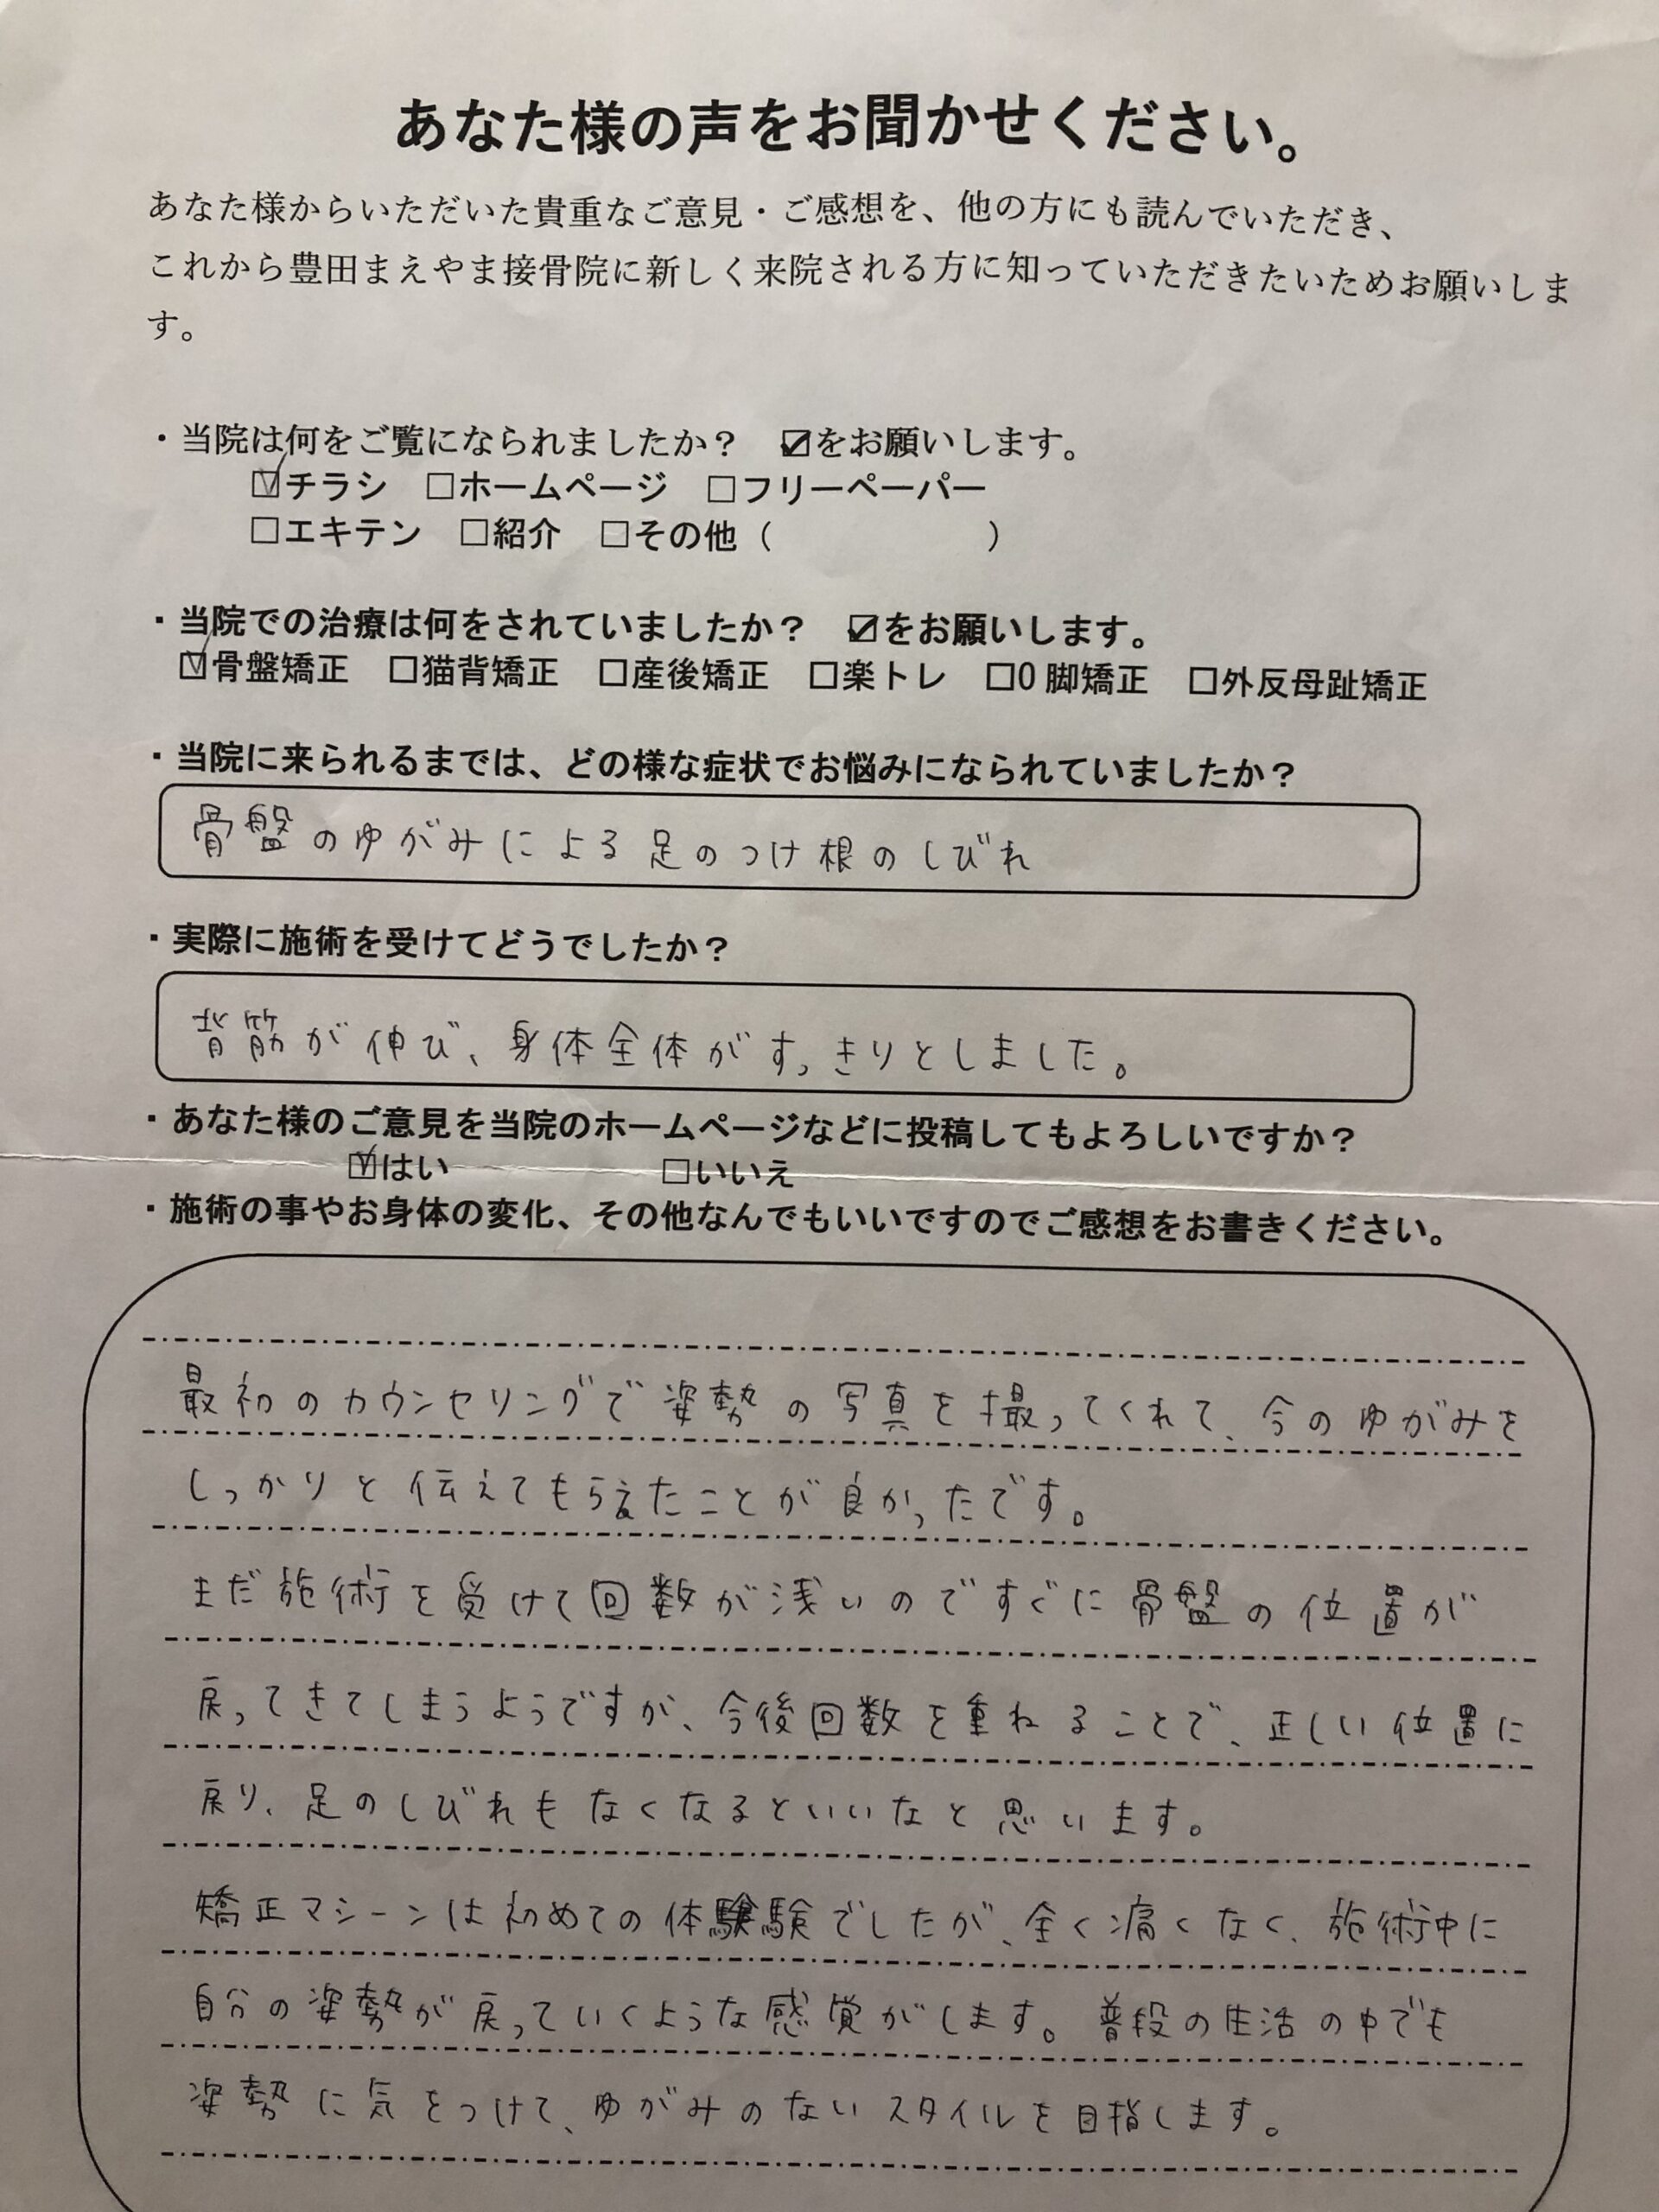 あなた様の声をお聞かせください。
あなた様からいただいた貴重なご意見・ご感想を、他の方にも読んでいただき、
これから豊田まえやま接骨院に新しく来院される方に知っていただきたいためお願いしま
す。
・当院は何をご覧になられましたか？　☑をお願いします。
☑チラシ　☐ホームページ　☐フリーペーパー
☐エキテン　☐紹介　☐その他（　　　　　　）
・当院での治療は何をされていましたか？　☑をお願いします。
☑骨盤矯正　☐猫背矯正　☐産後矯正　☐楽トレ　☐O脚矯正　☐外反母趾矯正
・当院に来られるまでは、どの様な症状でお悩みになられていましたか？
骨盤のゆがみによる足のつけ根のしびれ
・実際に施術を受けてどうでしたか？
背筋が伸び、身体全体がすっきりとしました。
・あなた様のご意見を当院のホームページなどに投稿してもよろしいですか？
☑はい　☐いいえ
・施術の事やお身体の変化、その他なんでもいいですのでご感想をお書きください。
最初のカウンセリングで姿勢の写真を撮ってくれて、今のゆがみを
しっかりと伝えてもらえたことが良かったです。
まだ施術を受けて回数が浅いのですぐに骨盤の位置が
戻ってきてしまうようですが、今後回数を重ねることで、正しい位置に
戻り、足のしびれもなくなるといいなと思います。
矯正マシーンは初めての体験でしたが、全く痛くなく、施術中に
自分の姿勢が戻っていくような感覚がします。普段の生活の中でも
姿勢に気をつけて、ゆがみのないスタイルを目指します。